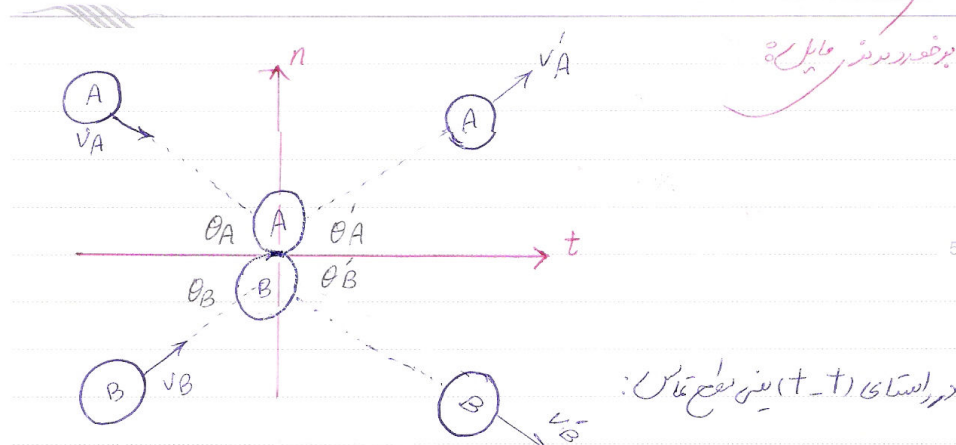 برخورد مرکزی مایل:
n
A
v'A
A
vA
θA
A
θ'A
t
θB
B
θ'B
B
vB
B
v'B
در راستای (t-t) یعنی سطح تماس: